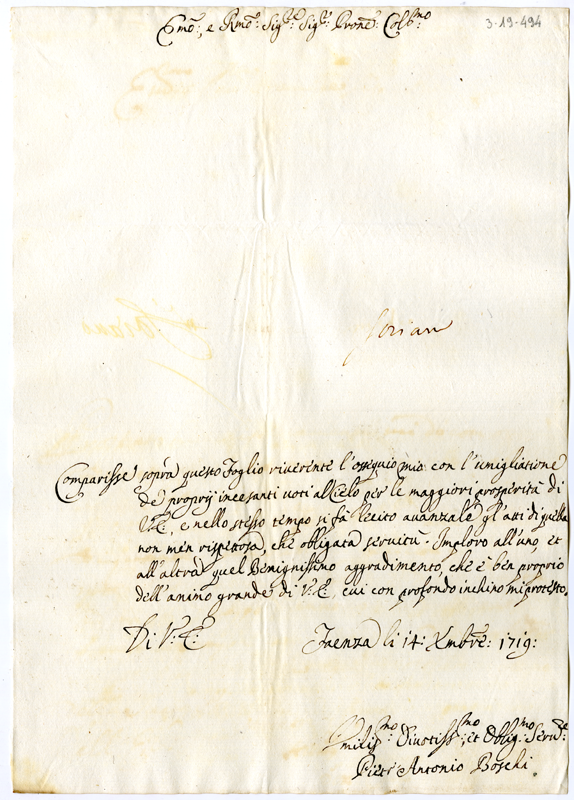 3-19-494
Emo:, e Rmo: Sigre: Sigre: Prone: Collmo
Comparisse sopra questo foglio riverente l'ossequio mio con l'umigliatione
de' proprij incesanti voti al Cielo per le maggiori prosperità di
V: E:, e nello stesso tempo si fà lecito avanzale gl'atti di quella
non men rispettosa, che obligata servitù. Imploro all'uno, et
all'altra quel Benignissimo aggradimento, che è ben proprio
dell'animo grande di V: E:, cui con profondo inchino mi protesto.
Di V: E:
Faenza li 14: Xmbre: 1719:
Umilismo: Divotissmo:, et Obligmo: Servre:
Pietr' Antonio Boschi